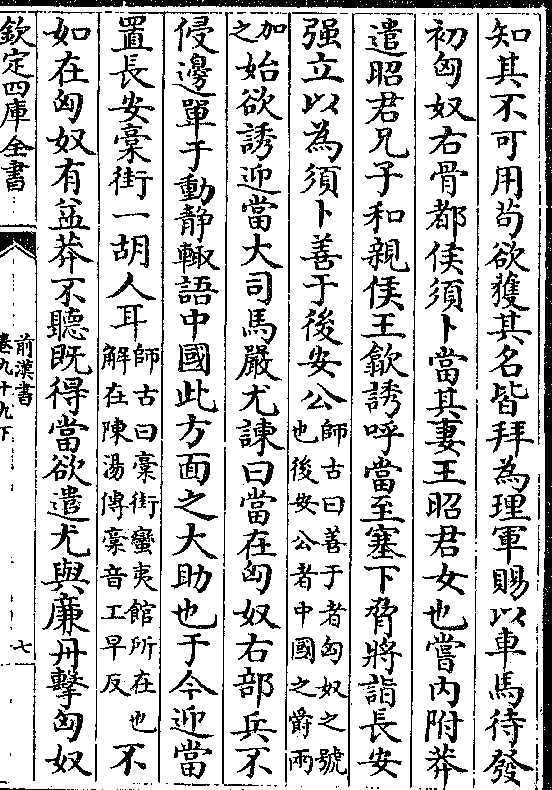 知其不可用苟欲獲其名皆拜為理軍賜以車馬待發
初匈奴右骨都侯須卜當其妻王昭君女也嘗內附莽
遣昭君兄子和親侯王歙誘呼當至塞下脅將詣長安
强立以為須卜善于後安公
師古曰善于者匈奴之號
也後安公者中國之爵兩
加
之
始欲誘迎當大司馬嚴尤諫曰當在匈奴右部兵不
侵邊單于動靜輙語中國此方面之大助也于今迎當
置長安稾街一胡人耳
師古曰稾街蠻夷館所在也
解在陳湯傳稾音工早反
不
如在匈奴有益莽不聽既得當欲遣尤與廉丹擊匈奴
欽定四庫全書
前漢書
卷九十九下
七